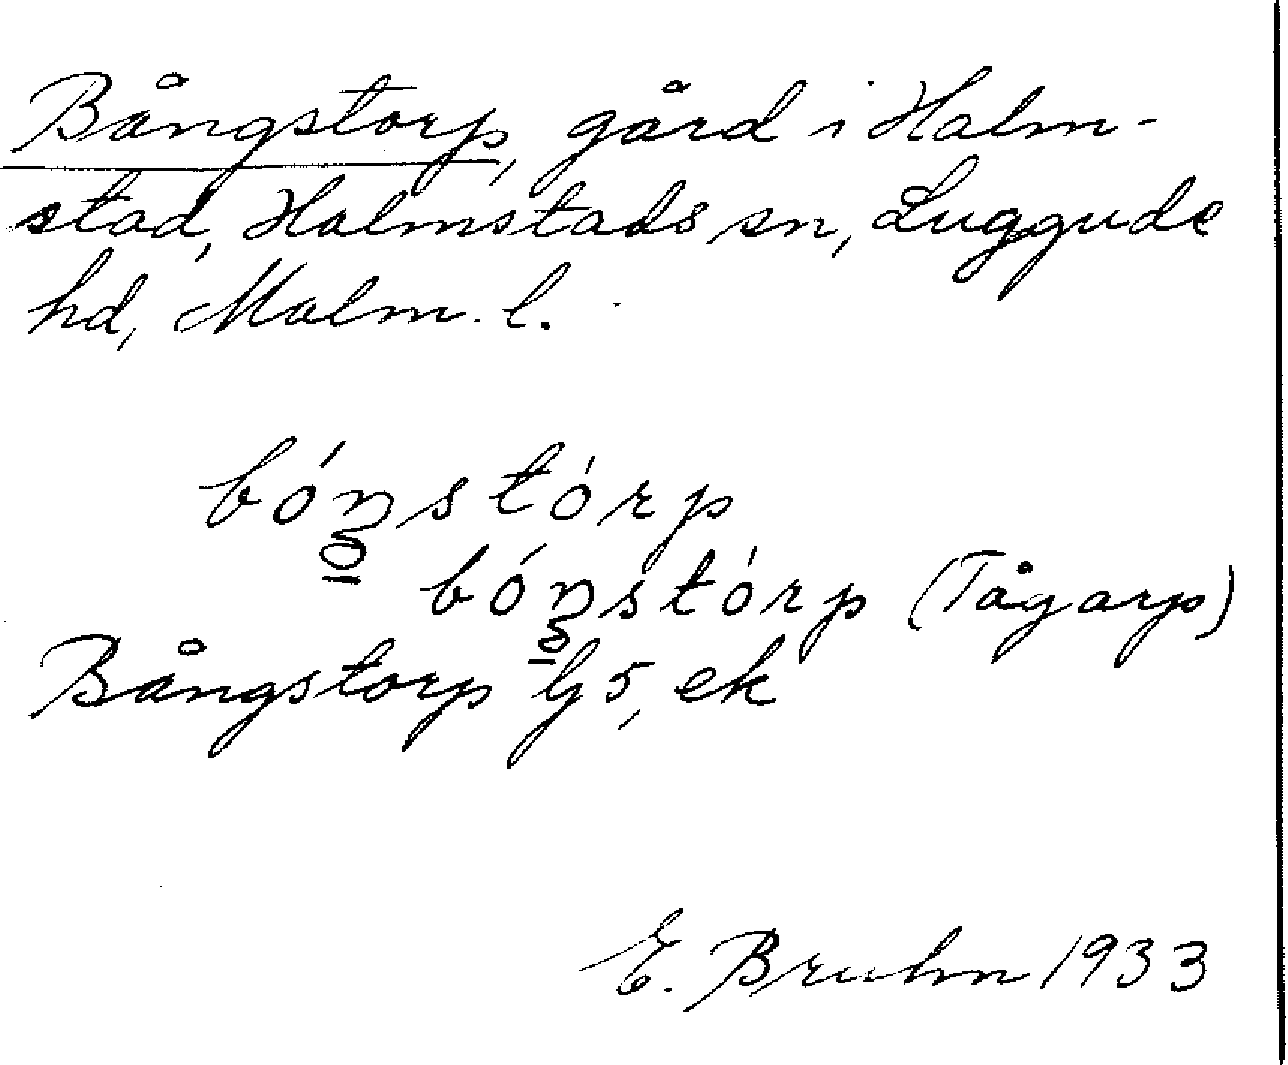 Bångstorp, gård i Halm-
stad, Halmstads sn, Luggude
hd, Malm. l.
bóŋstórp
bóŋstórp (Tågarp)
Bångstorp lj 5, ek
E. Bruhn 1933